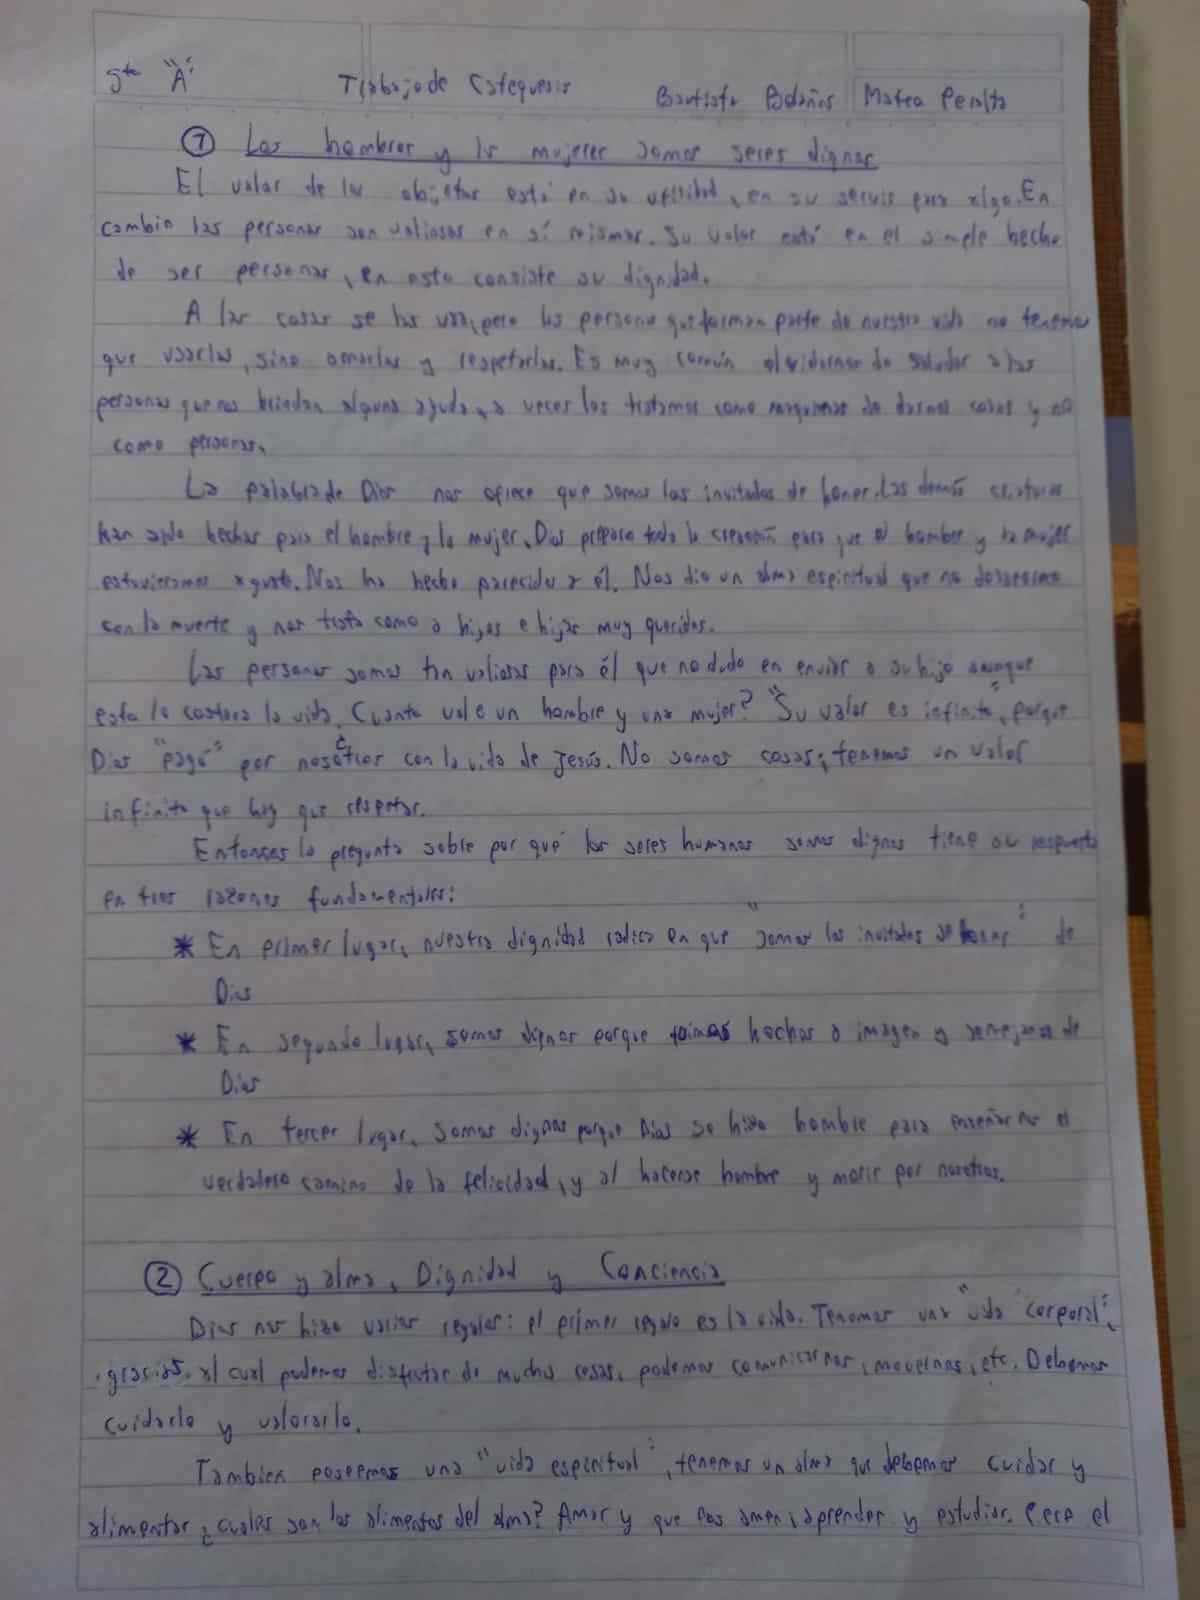 5to "A" Trabajo de Catequesis Bautista Bolaños Mateo Peralta
① Los hombres y la mujeres somos seres dignos
El valor de los objetos está en su utilidad, en su servir para algo. En
cambio las personas son valiosas en sí mismas. Su valor está en el simple hecho
de ser personas, en esto consiste su dignidad.
A las cosas se las usa, pero las personas que forman parte de nuestra vida no tenemos
que usarlas, sino amarlas y respetarlas. Es muy común olvidarnos de saludar a las
personas que nos brindan alguna ayuda, a veces los tratamos como maquinas de darnos cosas y no
como personas.
La palabra de Dios nos ofrece que somos los invitados de honor. Las demás criaturas
han sido hechas para el hombre y la mujer. Dios preparo toda la creación para que el hombre y la mujer
estuvieramos a gusto. Nos ha hecho parecidos a él. Nos dio un alma espiritual que no desaparece
con la muerte y nos trata como a hijos e hijas muy queridos.
Las personas somos tan valiosas para él que no dudo en enviar a su hijo aunque
esto le costara la vida. Cuanto vale un hombre y una mujer? "Su valor es infinito", porque
Dios "pagó" por nosotros con la vida de Jesús. No somos cosas; tenemos un valor
infinito que hay que respetar.
Entonces la pregunta sobre por qué los seres humanos somos dignos tiene su respuesta
en tres razones fundamentales:
* En primer lugar, nuestra dignidad radica en que "somos los invitados de honor" de
Dios
* En segundo lugar, somos dignos porque fuimos hechos a imagen y semejanza de
Dios
* En tercer lugar, somos dignos porque Dios se hizo hombre para enseñarnos el
verdadero camino de la felicidad, y al hacerse hombre y morir por nosotros.
② Cuerpo y alma, Dignidad y Conciencia
Dios nos hizo varios regalos: el primer regalo es la vida. Tenemos una "vida corporal",
gracias al cual podemos disfrutar de muchas cosas, podemos comunicarnos, movernos, etc. Debemos
cuidarlo y valorarlo.
Tambien poseemos una "vida espiritual", tenemos un alma que debemos cuidar y
alimentar ¿cuáles son los alimentos del alma? Amar y que nos amen, aprender y estudiar. Pero el